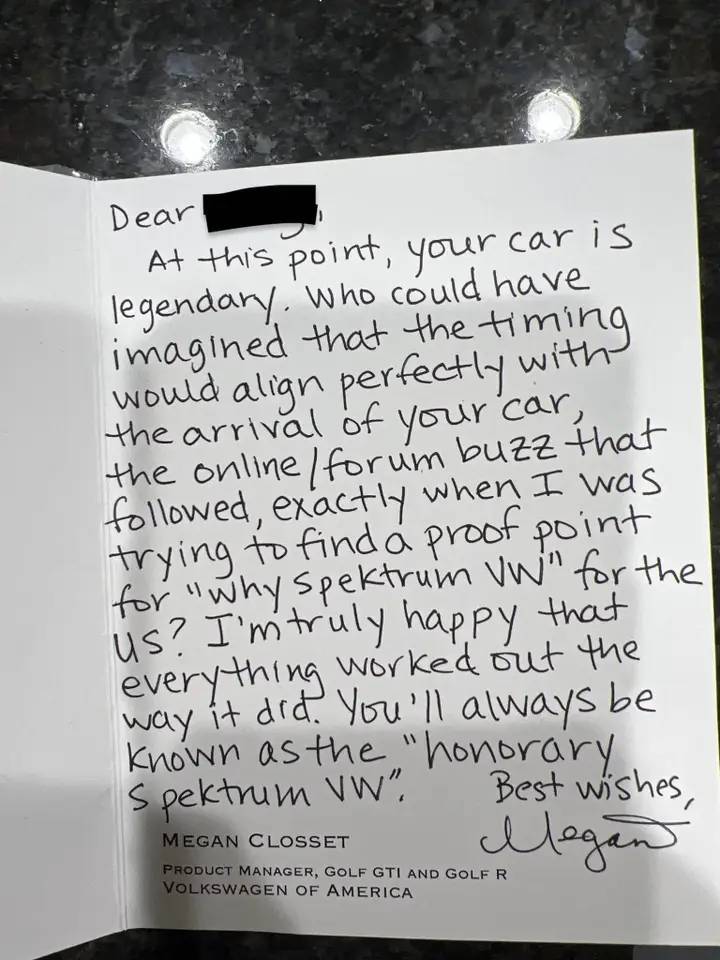 Dear
At this point, your car is
legendary. Who could have
imagined that the timing
would align perfectly with
the arrival of your car,
the online/forum buzz that
followed, exactly when I was
trying to find a proof point
for "why Spektrum VW" for the
US? I'm truly happy that
everything worked out the
way it did. You'll always be
known as the "honorary
Spektrum VW".
Best wishes,
Megan
MEGAN CLOSSET
PRODUCT MANAGER, GOLF GTI AND GOLF R
VOLKSWAGEN OF AMERICA